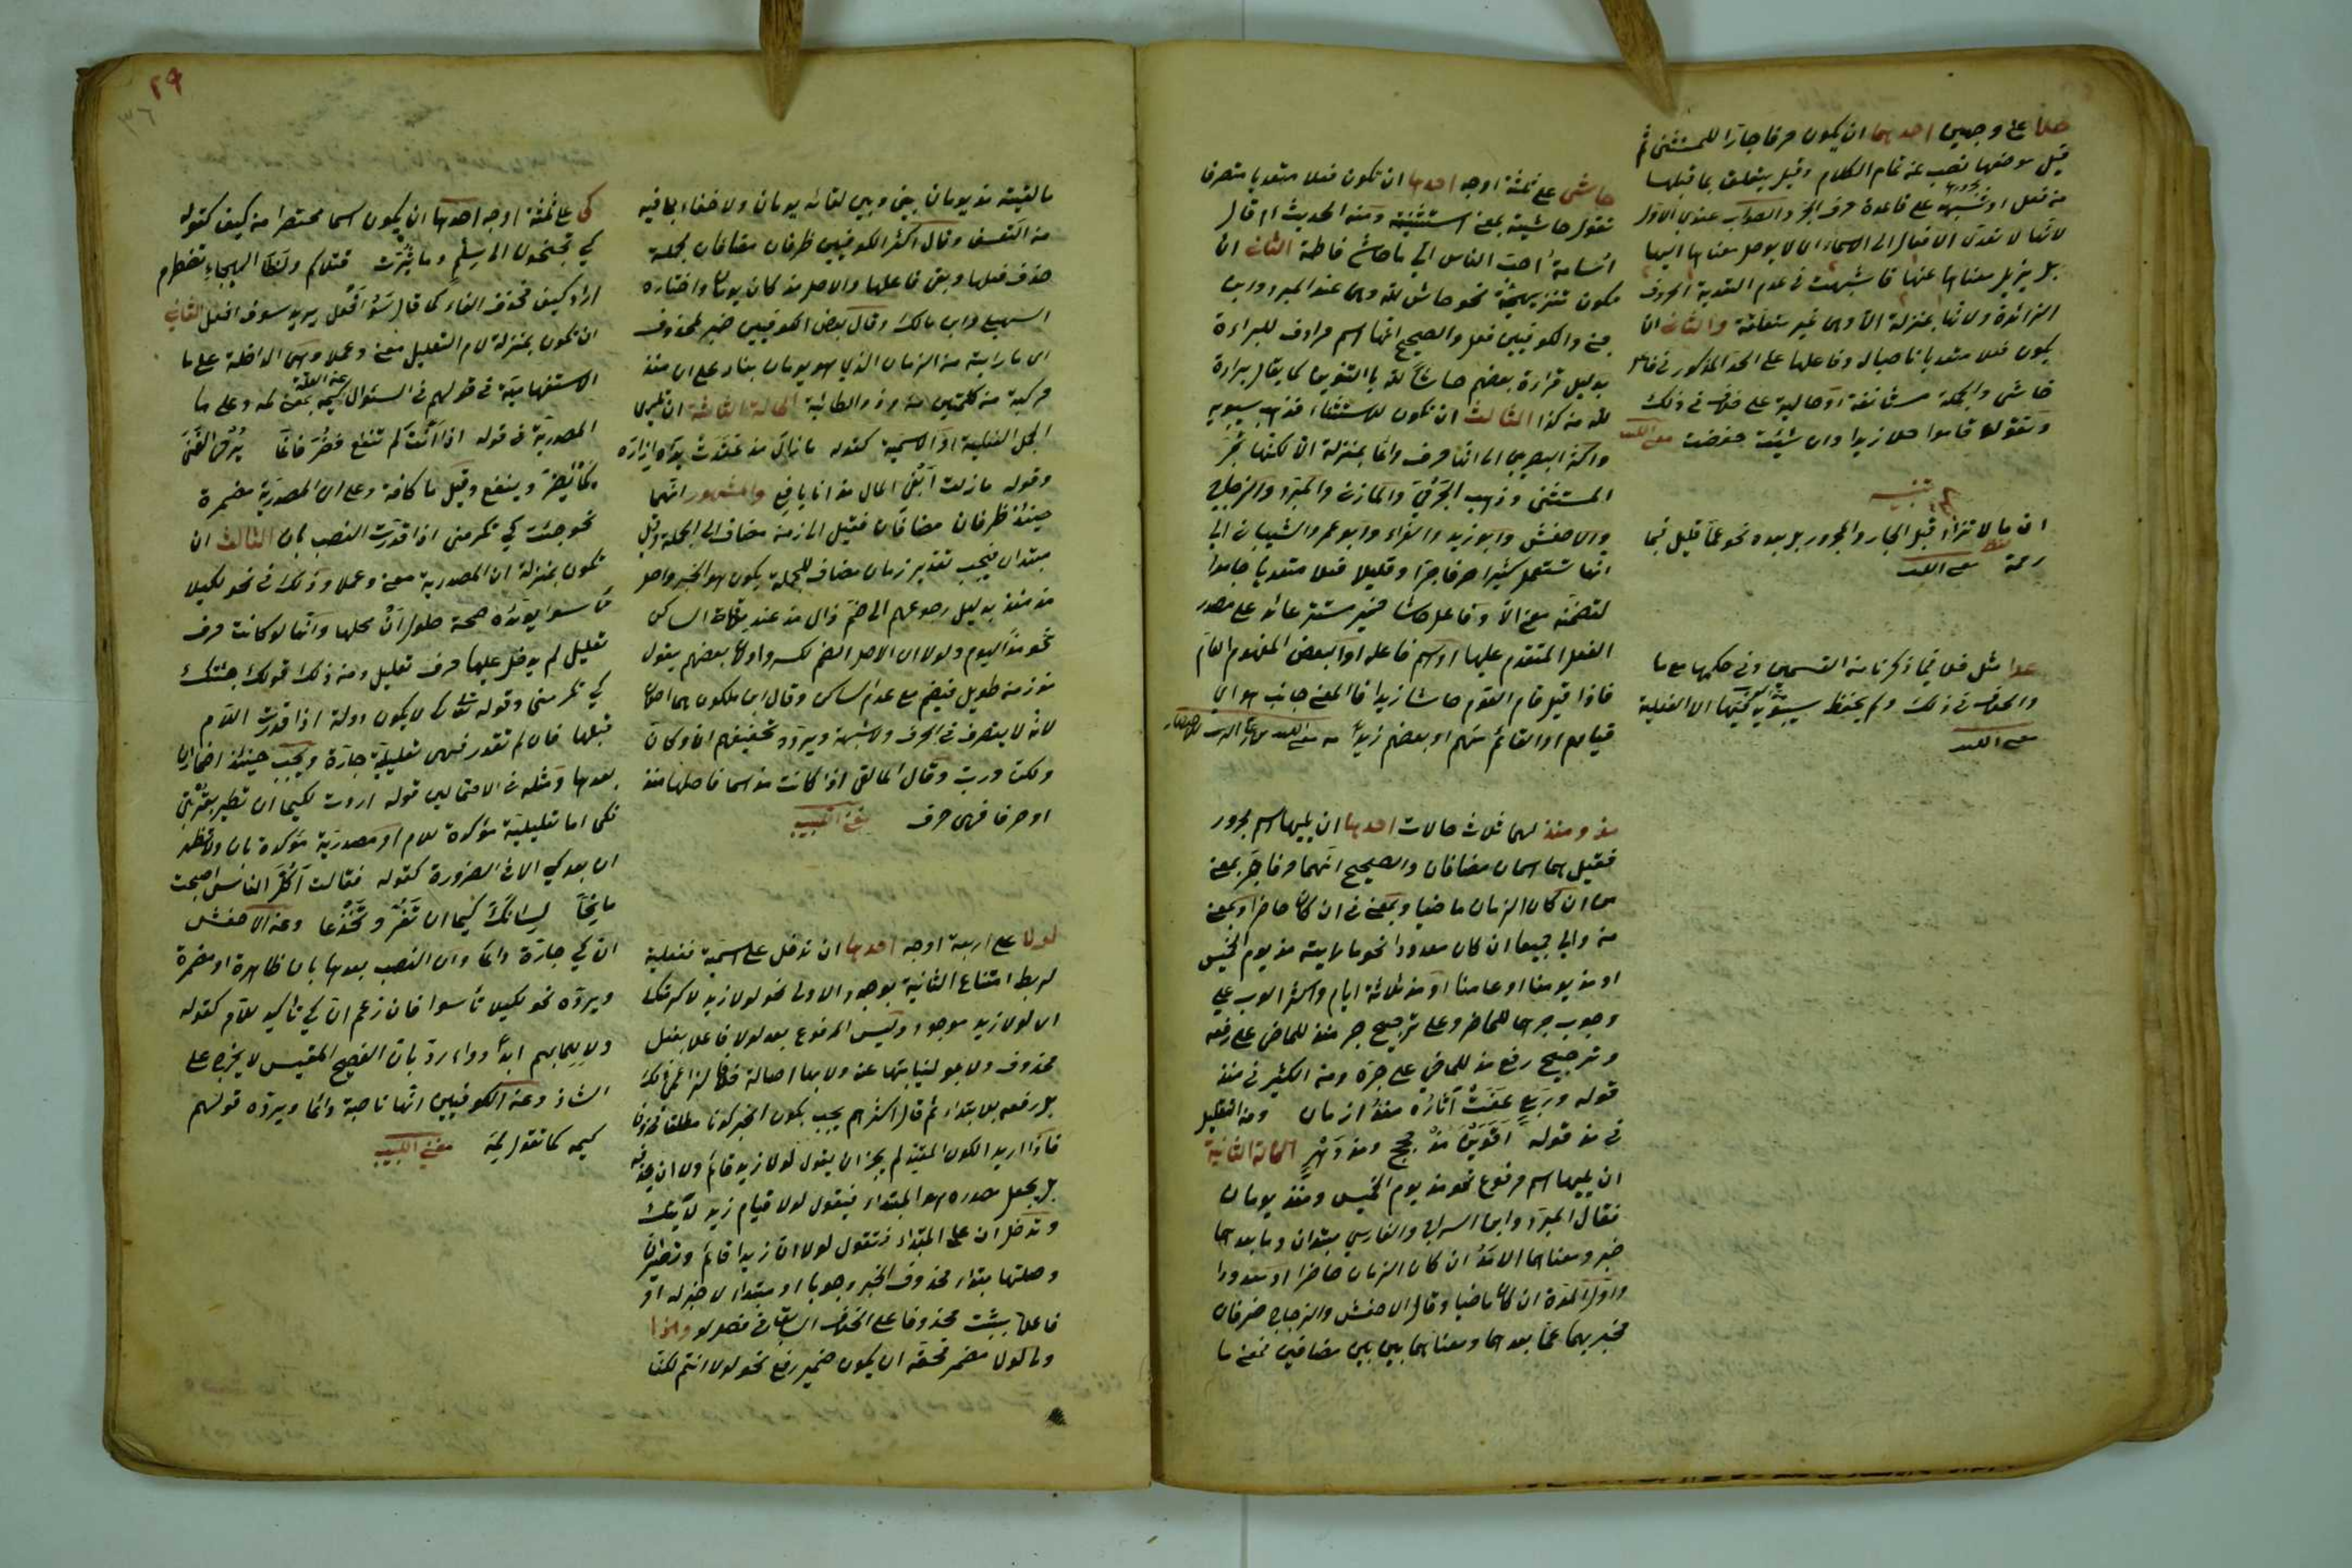 خلا على وجهين احدهما ان يكون حرفا جارا للمستثنى ثم
قيل موضعها نصب عن تمام الكلام وقيل يتعلق بما قبلها
من فعل او شبهه على قاعدة حرف الجر والصواب عندي الاول
لانها لا تعدى الافعال الى الاسماء اى لا يوصل معناها اليها
بل يزيل معناها عنها فاشبهت في عدم التعدية الحروف
الزائدة ولانها بمنزلة الا وهى غير متعلقة والثانى ان
يكون فعلا متعديا ناصبا له وفاعلها على الحد المذكور في فاعل
حاشى والجملة مستأنفة او حالية على خلاف في ذلك
وتقول قاموا خلا زيدا وان شئت خفضت مغنى اللبيب
تنبيه
ان ما لا تزاد قبل الجار والمجرور بل بعده نحو عما قليل فبما
رحمة مغنى اللبيب
عدا مثل خلا فيما ذكرنا من القسمين وفى حكمها مع ما
والخلاف فى ذلك ولم يحفظ سيبويه فيها الا الفعلية
مغنى اللبيب
حاشى على ثلثة اوجه احدها ان تكون فعلا متعديا متصرفا
تقول حاشيته بمعنى استثنيته ومنه الحديث انه قال
اسامة احب الناس الي ما حاشى فاطمة الثانى ان
تكون تنزيهية نحو حاش لله وهى عند المبرد وابن
جنى والكوفيين فعل والصحيح انها اسم مرادف للبراءة
بدليل قراءة بعضهم حاشا لله بالتنوين كما يقال براءة
لله من كذا الثالث ان تكون للاستثناء فذهب سيبويه
واكثر البصريين الى انها حرف دائما بمنزلة الا لكنها تجر
المستثنى وذهب الجرمى والمازنى والمبرد والزجاج
والاخفش وابو زيد والفراء وابو عمرو الشيبانى الى
انها تستعمل كثيرا حرفا جرا وقليلا فعلا متعديا جامدا
لتضمنه معنى الا وفاعل حاشا ضمير مستتر عائد على مصدر
الفعل المتقدم عليها او اسم فاعله او البعض المفهوم العام
فاذا قيل قام القوم حاشا زيدا فالمعنى جانب هو اى
قيامهم او القائم منهم او بعضهم زيدا مغنى اللبيب
مذ ومنذ لهما ثلاث حالات احدها ان يليهما اسم مجرور
فقيل هما اسمان مضافان والصحيح انهما حرفا جر بمعنى
من ان كان الزمان ماضيا وبمعنى فى ان كان حاضرا وبمعنى
من والى جميعا ان كان معدودا نحو ما رايته مذ يوم الخميس
او مذ يومنا او عامنا او مذ ثلاثة ايام واكثر العرب على
وجوب جرهما للحاضر وعلى ترجيح جر منذ للماضى على رفعه
وترجيح رفع مذ للماضى على جره ومن الكثير فى منذ
قوله وربع عفت آثاره منذ ازمان ومن القليل
فى مذ قوله اقوين مذ حجج ومذ دهر الحالة الثانية
ان يليهما اسم مرفوع نحو مذ يوم الخميس ومنذ يومان
فقال المبرد وابن السراج والفارسى مبتدان وما بعدهما
خبر ومعناهما الامد ان كان الزمان حاضرا او معدودا
واول المدة ان كان ماضيا وقال الاخفش والزجاج ظرفان
مخبر بهما عما بعدهما ومعناهما بين بين مضافين فمعنى ما
مالقيته مذ يومان بينى وبين لقائه يومان ولا خفاء بما فيه
من التعسف وقال اكثر الكوفيين ظرفان مضافان لجملة
حذف فعلها وبقى فاعلها والاصل مذ كان يومان واختاره
السهيلى وابن مالك وقال بعض الكوفيين خبر لمحذوف
اى ما رايته من الزمان الذى هو يومان بناء على ان منذ
مركبة من كلمتين من وذو الطائية الحالة الثالثة ان يليهما
الجمل الفعلية او الاسمية كقوله ما زال مذ عقدت يداه ازاره
وقوله مازلت ابغى المال مذ انا يافع والمشهور انهما
حينئذ ظرفان مضافان فقيل الى الجملة وقيل
مبتدان فيجب تقدير زمان مضاف للجملة يكون هو الخبر واصل
مذ منذ بدليل رجوعهم الى ضم ذال مذ عند ملاقات الساكن
نحو مذ اليوم ولولا ان الاصل الضم لكسر ولان بعضهم يقول
مذ زمن طويل فيضم مع عدم الساكن وقال ابن ملكون هما اصلان
لانه لا يتصرف فى الحرف ولا شبهه ويرده تخفيفهم ان وكان
ولكن ورب وقال المالقى اذا كانت مذ اسما فاصلها منذ
او حرفا فهى حرف مغنى اللبيب
لولا على اربعة اوجه احدها ان تدخل على اسمية ففعلية
لربط امتناع الثانية بوجود الاولى نحو لولا زيد لاكرمتك
اى لولا زيد موجود وليس المرفوع بعد لولا فاعلا بفعل
محذوف ولا بلولا لنيابتها عنه ولا بها اصالة خلافا لزاعمى ذلك
بل رفعه بالابتداء ثم قال اكثرهم يجب كون الخبر كونا مطلقا محذوفا
فاذا اريد الكون المقيد لم يجز ان يقول لولا زيد قائم ولا ان يحذفه
بل يجعل مصدره هو المبتداء فيقول لولا قيام زيد لاتيتك
وتدخل ان على المبتداء فتقول لولا ان زيدا قائم وتصير ان
وصلتها مبتداء محذوف الخبر وجوبا او مبتداء لا خبر له او
فاعلا بثبت محذوفا على الخلاف السابق فى فصل لو واذا
ولى لولا مضمر فحقه ان يكون ضمير رفع نحو لولا انتم لكنا
٢٩
٣٦
كى على ثلثة اوجه احدها ان يكون اسما مختصرا من كيف كقوله
كى تجنحون الى سلم وما ثئرت قتلاكم ولظى الهيجاء تضطرم
اراد كيف فحذف الفاء كما قال سو افعل يريد سوف افعل الثانى
ان تكون بمنزلة لام التعليل معنى وعملا وهى الداخلة على ما
الاستفهامية فى قولهم فى السؤال عن العلة كيمه بمعنى لمه وعلى ما
المصدرية فى قوله اذا انت لم تنفع فضر فانما يرجى الفتى
كيما يضر وينفع وقيل ما كافة وعلى ان المصدرية مضمرة
نحو جئت كى تكرمنى اذا قدرت النصب بان الثالث ان
تكون بمنزلة ان المصدرية معنى وعملا وذلك فى نحو لكيلا
تأسوا يؤيده صحة حلول ان محلها وانها لو كانت حرف
تعليل لم يدخل عليها حرف تعليل ومن ذلك قولك جئتك
كى تكرمنى وقوله تعالى كى لا يكون دولة اذا قدرت اللام
قبلها فان لم تقدر فهى تعليلية جارة ويجب حينئذ اضمار ان
بعدها ومثله فى الاحتمالين قوله اردت لكيما ان تطير بقربتى
فكى اما تعليلية مؤكدة للام او مصدرية مؤكدة بان ولا تظهر
ان بعد كى الا فى الضرورة كقوله فقالت أكل الناس اصبحت
مانحا لسانك كيما ان تغر وتخدعا وعن الاخفش
ان كى جارة دائما وان النصب بعدها بان ظاهرة او مضمرة
ويرده نحو لكيلا تأسوا فان زعم ان كى تاكيد للام كقوله
ولا للما بهم ابدا دواء رد بان الفصيح المقيس لا يخرج على
الشاذ وعن الكوفيين انها ناصبة دائما ويرده قولهم
كيمه كما تقول لمه مغنى اللبيب